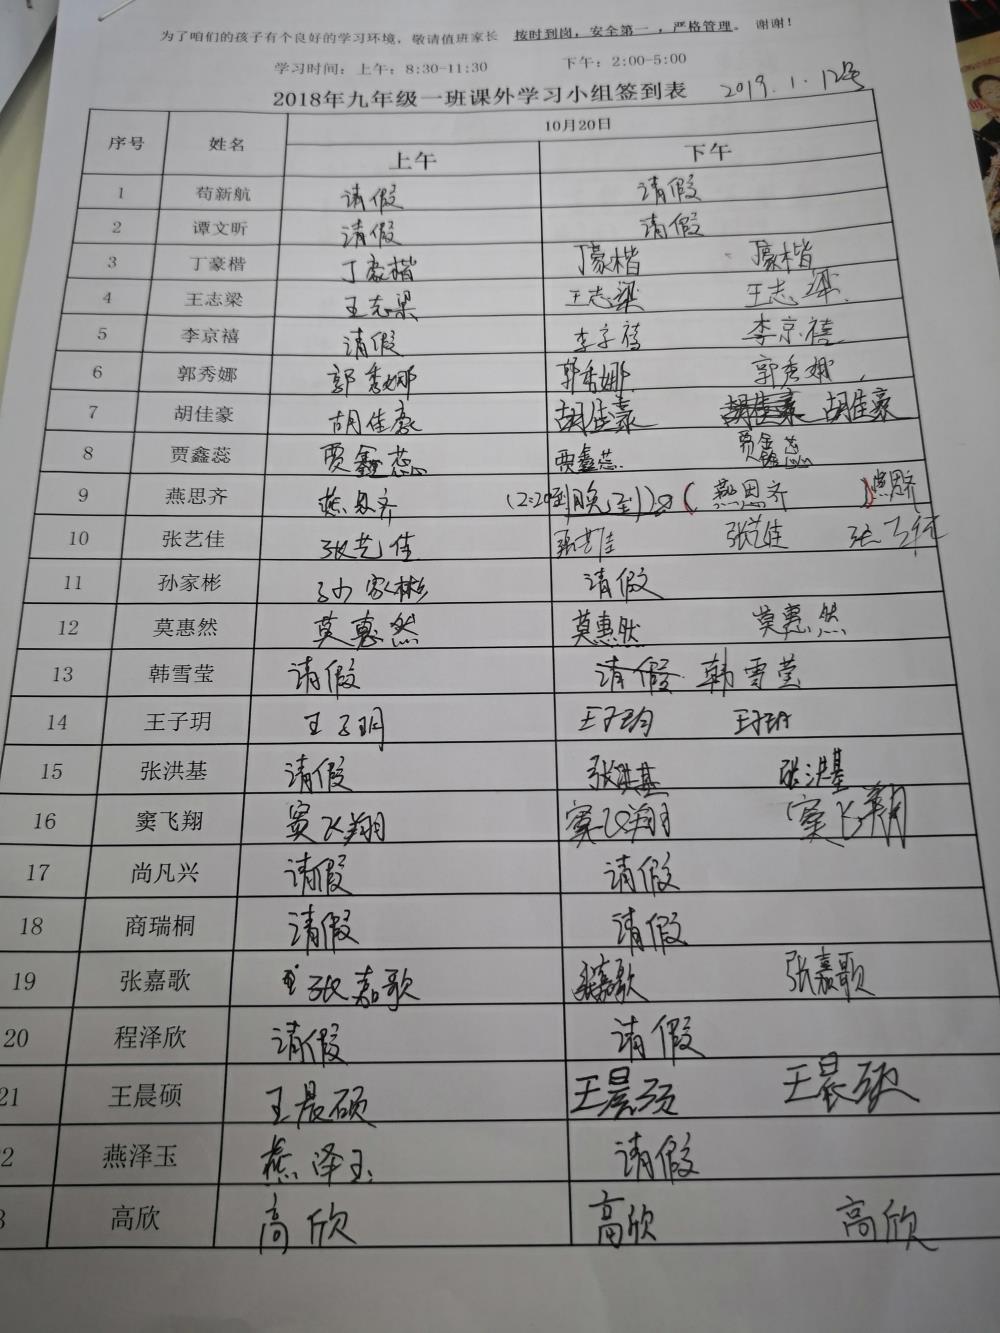 为了咱们的孩子有个良好的学习环境，敬请值班家长 按时到岗，安全第一，严格管理。 谢谢！
学习时间：上午：8:30-11:30 下午：2:00-5:00
2018年九年级一班课外学习小组签到表 2019.1.12号
序号 姓名 10月20日
上午 下午
1 苟新航 请假 请假
2 谭文昕 请假 请假
3 丁豪楷 丁豪楷 丁豪楷 丁豪楷
4 王志梁 王志梁 王志梁 王志梁
5 李京禧 请假 李京禧 李京禧
6 郭秀娜 郭秀娜 郭秀娜 郭秀娜
7 胡佳豪 胡佳豪 胡佳豪 胡佳豪 胡佳豪
8 贾鑫蕊 贾鑫蕊 贾鑫蕊 贾鑫蕊
9 燕思齐 燕思齐 (2:20到)晚到 (燕思齐) 燕思齐
10 张艺佳 张艺佳 张艺佳 张艺佳 张
11 孙家彬 孙家彬 请假
12 莫惠然 莫惠然 莫惠然 莫惠然
13 韩雪莹 请假 请假 韩雪莹
14 王子玥 王子玥 王子玥 王子玥
15 张洪基 请假 张洪基 张洪基
16 窦飞翔 窦飞翔 窦飞翔 窦飞翔
17 尚凡兴 请假 请假
18 商瑞桐 请假 请假
19 张嘉歌 张嘉歌 张嘉歌 张嘉歌
20 程泽欣 请假 请假
21 王晨硕 王晨硕 王晨硕 王晨硕
2 燕泽玉 燕泽玉 请假
3 高欣 高欣 高欣 高欣